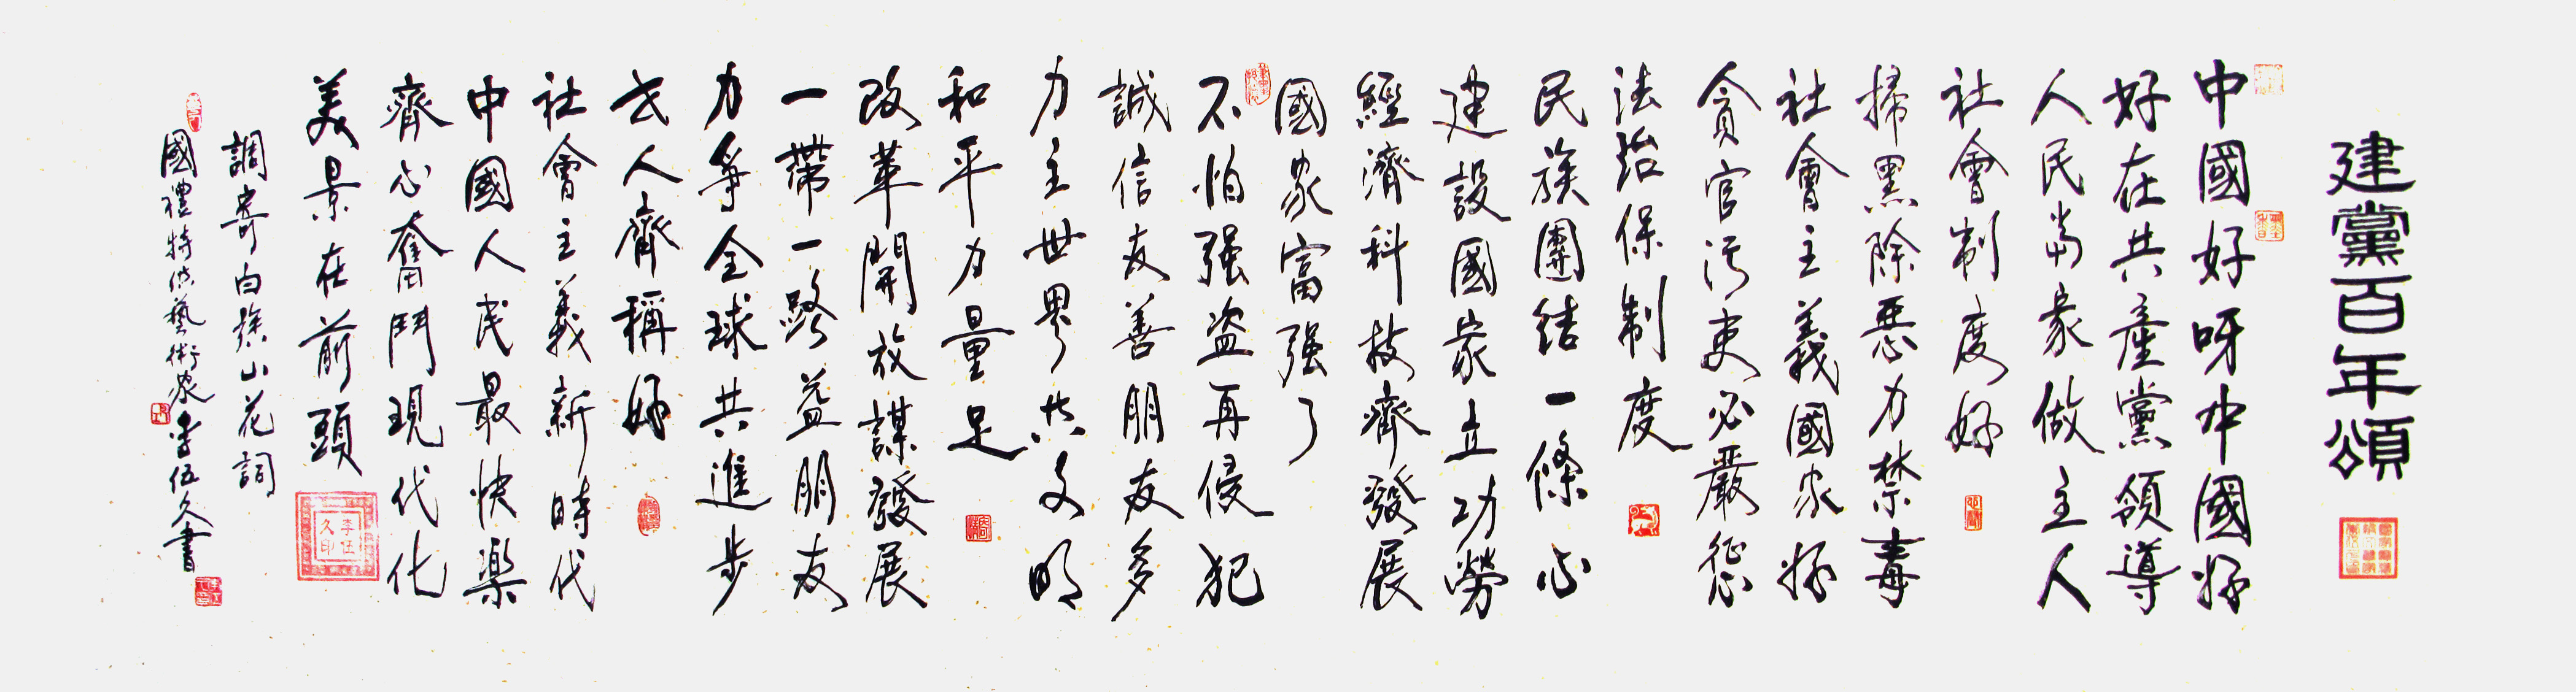 建黨百年頌
中國好呀中國好
好在共產黨領導
人民當家做主人
社會制度好
掃黑除惡力禁毒
社會主義國家好
貪官污吏必嚴懲
法治保制度
民族團結一條心
建設國家立功勞
經濟科技齊發展
國家富強了
不怕强盗再侵犯
誠信友善朋友多
力主世界共文明
和平力量足
改革開放謀發展
一帶一路益朋友
力爭全球共進步
人齊稱好
社會主義新時代
中國人民最快樂
齊心奮鬥現代化
美景在前頭
調寄白族山花詞
國禮特供藝術家李伍久書
李伍久印